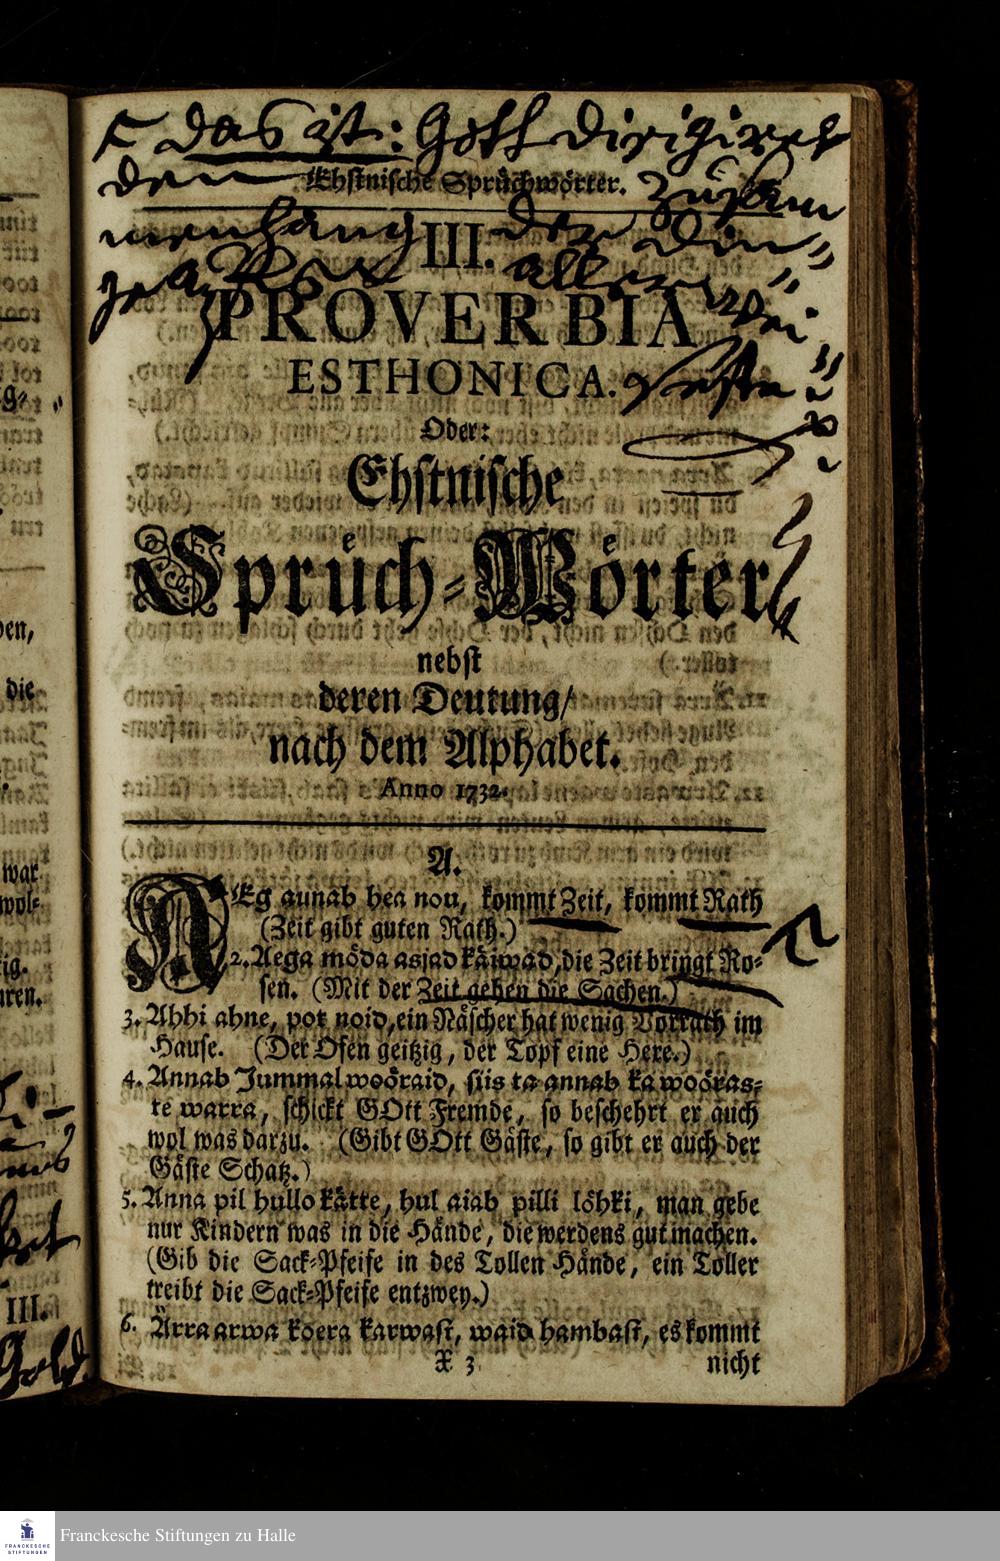 das ist: Gott dirigiret
den
Ehstnische Sprůchwörter.
zusam
menhang
der Din
III.
aller
PROVERBIA
ESTHONICA.
Oder:
Ehstnische
Sprůch-Wörter
nebst
deren Deutung/
nach dem Alphabet.
Anno 1732.
A.
AEg aunab hea nou, kommt Zeit, kommt Rath
(Zeit gibt guten Rath.)
2. Aega möda asjad käiwad, die Zeit bringt Ro-
sen. (Mit der Zeit gehen die Sachen.)
3. Ahhi ahne, pot noid, ein Näscher hat wenig Vorrath im
Hause. (Der Ofen geitzig, der Topf eine Hexe.)
4. Annab Jummal woöraid, siis ta annab ka wooras-
te warra, schickt GOtt Fremde, so beschehrt er auch
wol was darzu. (Gibt GOtt Gäste, so gibt er auch der
Gäste Schatz.)
5. Anna pil hullo kätte, hul aiab pilli löhki, man gebe
nur Kindern was in die Hände, die werdens gut machen.
(Gib die Sack-Pfeife in des Tollen Hände, ein Toller
treibt die Sack-Pfeife entzwey.)
6. Ärra arwa koera karwast, waid hambast, es kommt
X 3
nicht
ben,
die
war
wol-
tig.
uren.
III.
Gold.
Franckesche Stiftungen zu Halle
FRANCKESCHE
STIFTUNGEN